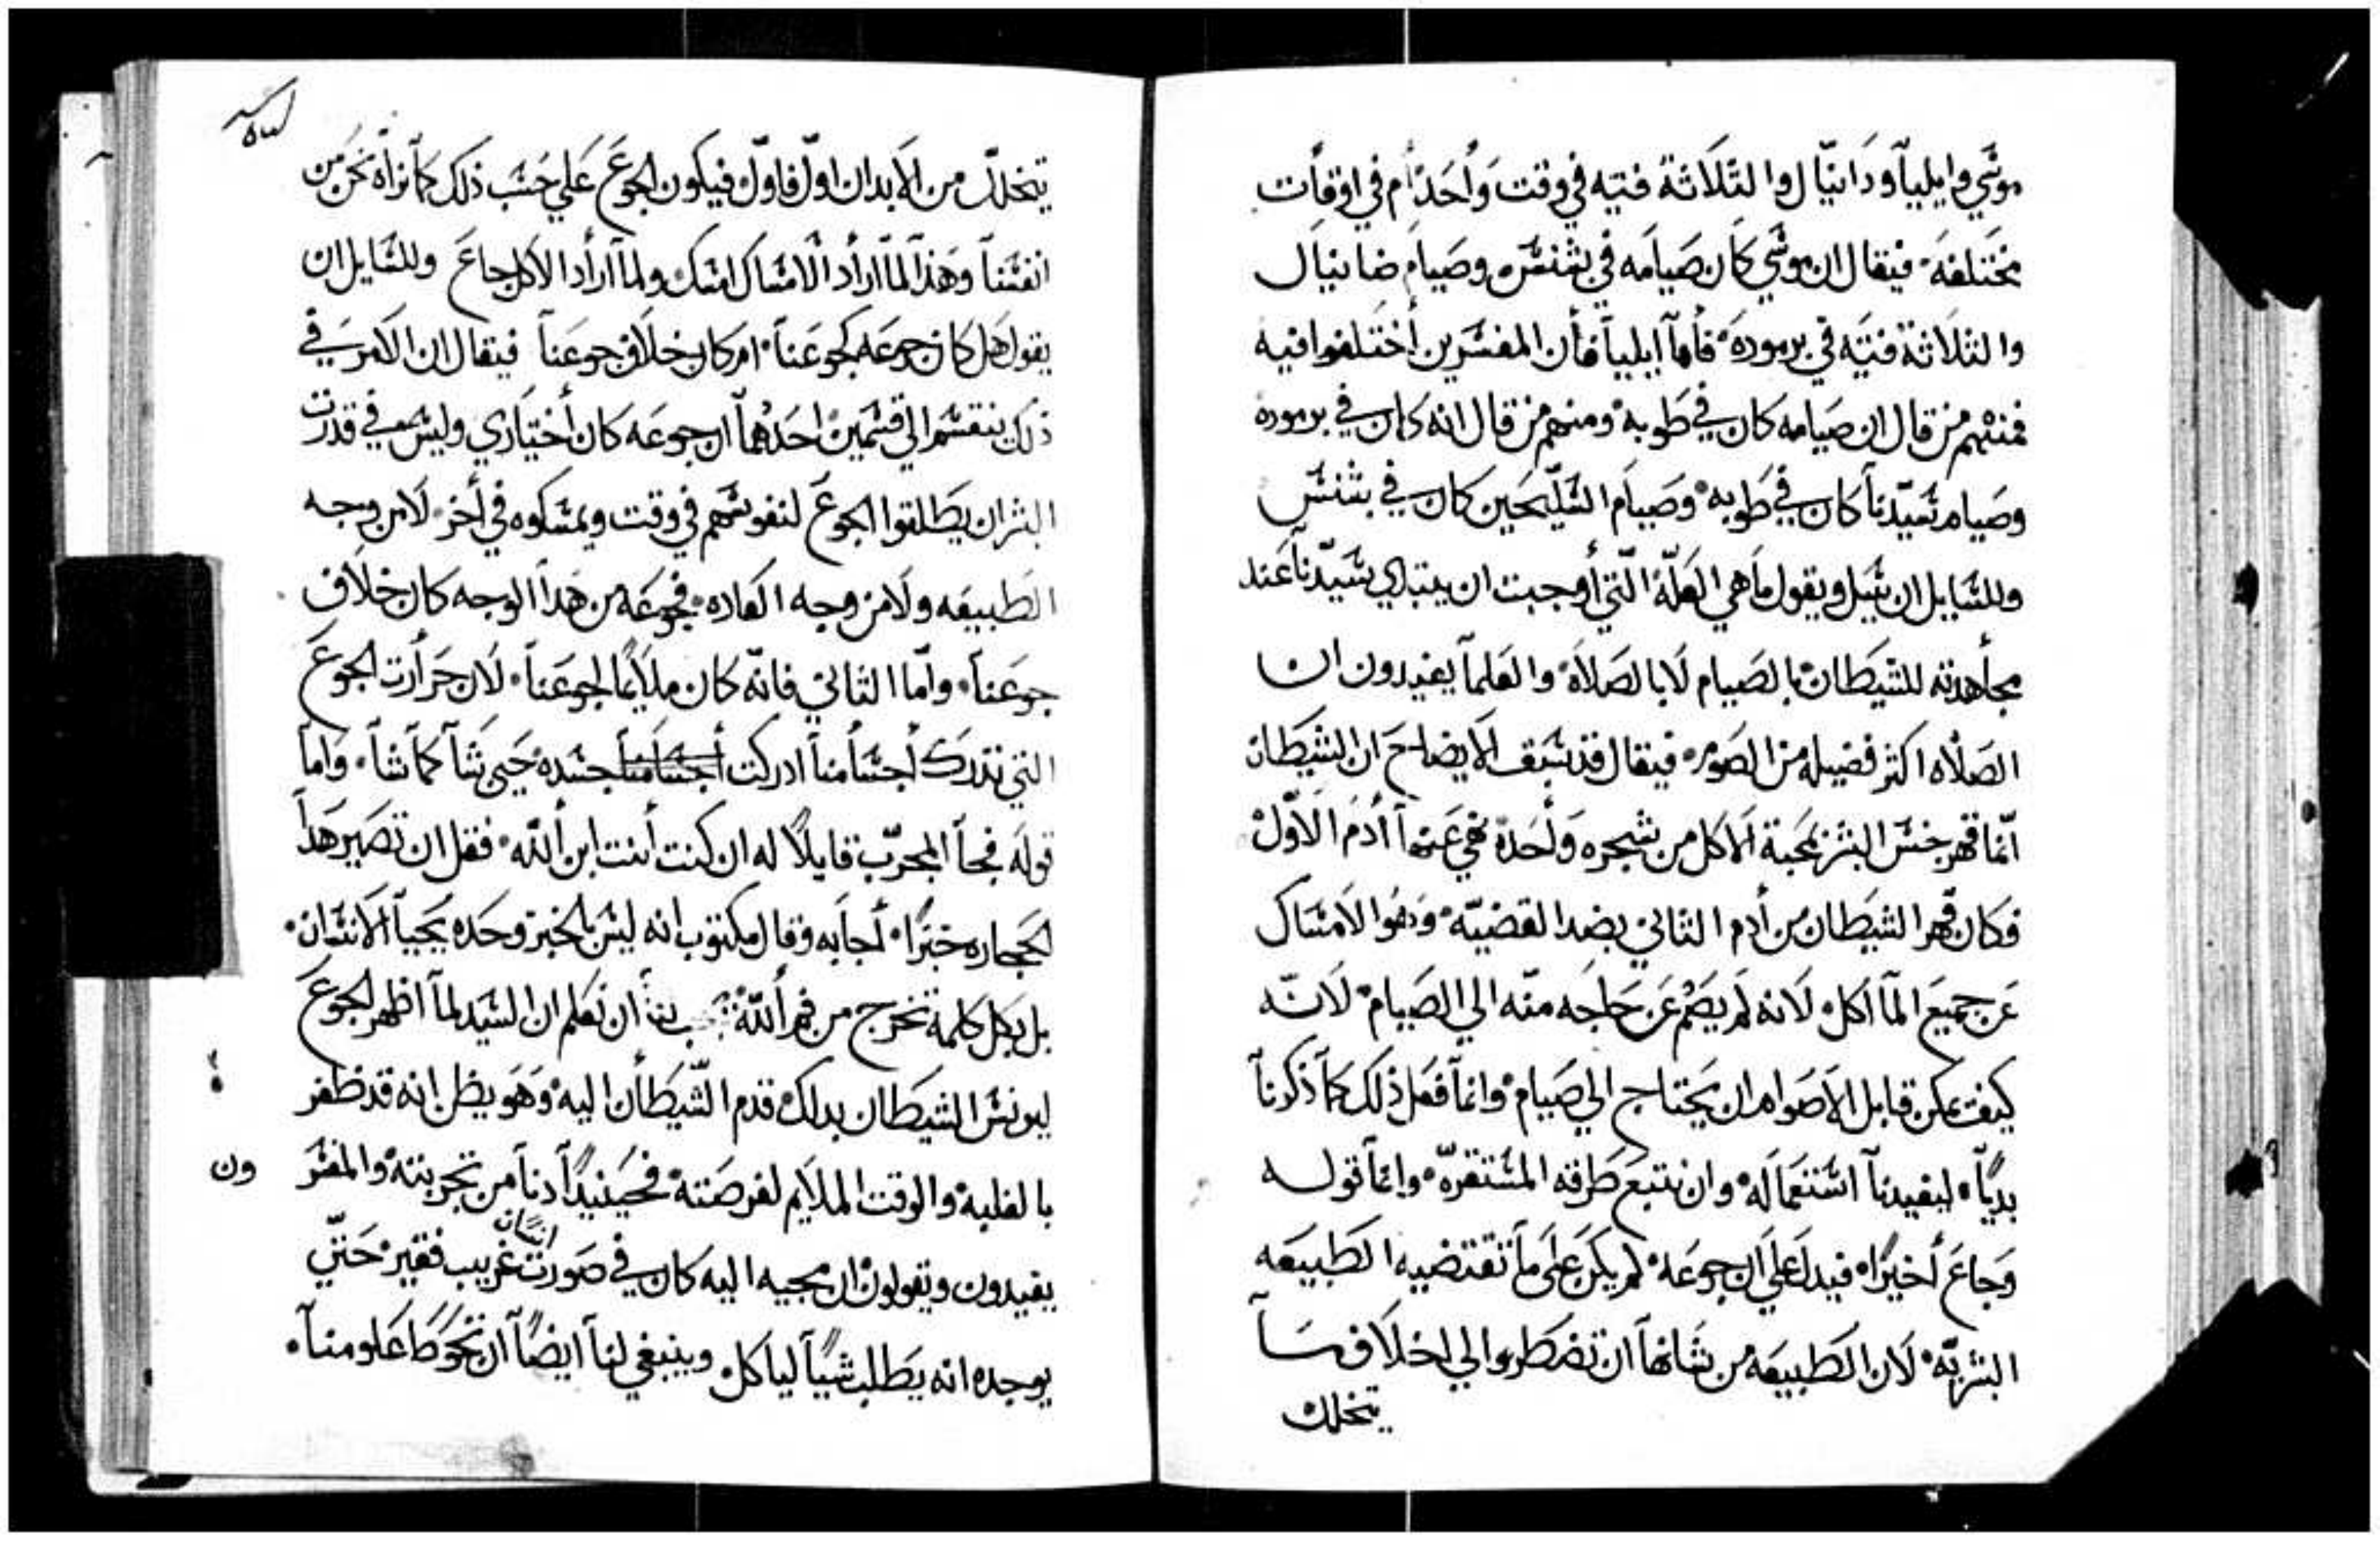 موسي وايلياً ودانيّال والثلاثة فتيه في وقت وأحد أم في اوقأت
مختلفه فيقال ان موسي كان صيامه في بشنس وصيام ضانيال
والثلاثة فتيَه في برموده فأما ايلياً فأن المفسّرين أختلفوا فيه
فمنهم من قال ان صيامه كان في طوبه ومنهم من قال انه كان في برموده
وصيام سيّدنا كان في طوبه وصيام السّليحين كان في بشنس
وللسايل ان يسل ويقول ما هي العلّة الّتي أوجبت ان يبتدي سيّدنا عند
مجأهدته للشيطان بالصيام لا بالصلاة والعلمآ يفيدون ان
الصلاه اكثر فضيله من الصوم فيقال قد سبق الايضاح ان الشيطان
انّما قهر جنس البشر بمحبة الاكل من شجره وأحدة نهي عنهآ أدم الاوّل
فكان قهر الشيطان من أدم الثاني بضد القضيّه وهوا الامساك
عن جميع المآ اكل لانه لم يصم عن حاجه منّه الي الصيام لانّه
كيف يمكن قابل الاصوام ان يحتاج الي صيام وانمآ فعل ذلك كمآ ذكرنآ
بديّاً ليفيدنآ استعماله وان نتبع طرقه المستقرّه وانمآ قوله
وجاع أخيرًا فيدل علي ان جوعه لم يكن علي مآ تقتضيه الطبيعه
البشريّه لان الطبيعه من شانهآ ان تضطر والي اخلاف مآ
يتخلل
يتخلّل من الابدان اولّ فاولّ فيكون الجوع علي حسب ذلك كمآ نرأه نحن من
انفسنآ وهذآ لمآ ارأد الامساك امسك ولمآ أرأد الاكل جاع وللسايل ان
يقول هل كان جوعه كجوعنآ ام كان خلاف جوعنآ فيقال ان الامر في
ذلك ينقسم الي قسمين احدهمآ ان جوعه كان أختياري وليس في قدرت
البشر ان يطلقوا الجوع لنفوسهم في وقت ويمسكوه في أخر لا من وجه
الطبيعه ولا من وجه العاده فجوعه من هدآ الوجه كان خلاف
جوعنآ وامّا الثاني فانّه كان ملايمًا لجوعنآ لان حرأرت الجوع
التي تدرك أجسأمنآ ادركت أجسامنا جسده حيي شآ كمآ شآ وامآ
قوله فجآ المجرّب قايلاً له ان كنت أنت ابن أللّه فقل ان تصير هدآ
الحجاره خبزًا أجابه وقال مكتوب انه ليس بالخبز وحده يحيآ الانسان
بل بكل كلمة تخرج من فم أللّه ان نعلم ان السيد لمآ اظهر الجوع
ليونس الشيطان بدلك قدم الشّيطأن اليه وهو يظن انه قد ظفر
بالغلبه والوقت الملايم لفرصته فحينيدًآ دنآ من تجربته والمفسر
ون
انسان
يفيدون ويقولون ان مجيه اليه كان في صورت غريب فقير حتّي
يوجده انه يطلب شياً لياكل وينبغي لنآ ايضًآ ان نحوط علومنآ